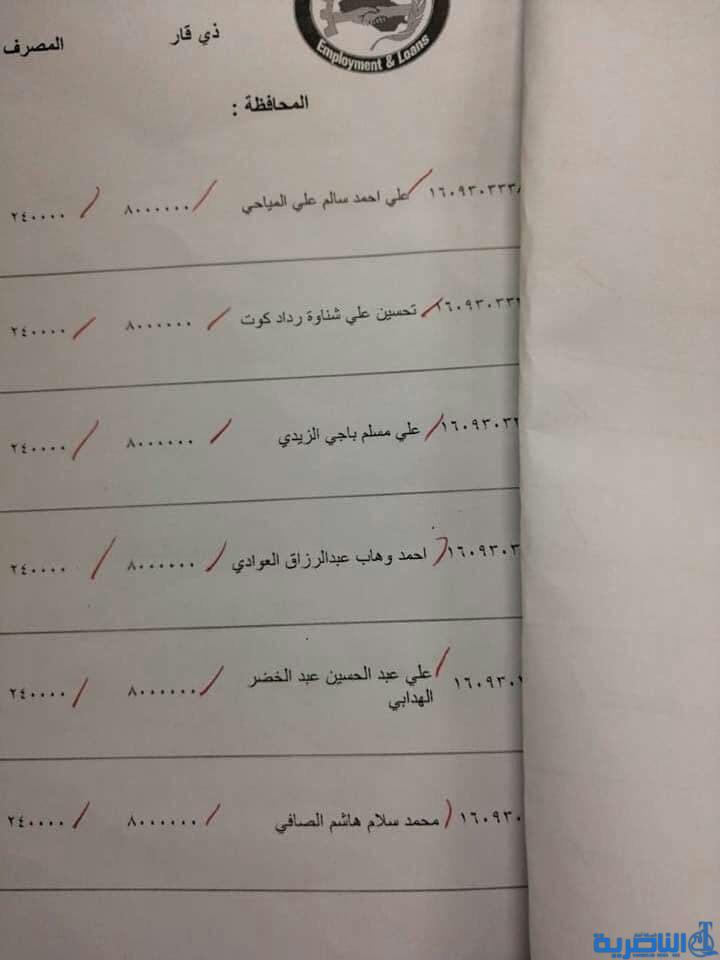 Employment & Loans
ذي قار
المصرف
المحافظة :
١٦٠٩٣٠٣٣٣٨ علي احمد سالم علي المياحي ٨٠٠٠٠٠٠ ٢٤٠٠٠٠
١٦٠٩٣٠٣٣ تحسين علي شناوة رداد كوت ٨٠٠٠٠٠٠ ٢٤٠٠٠٠
١٦٠٩٣٠٣ علي مسلم باجي الزيدي ٨٠٠٠٠٠٠ ٢٤٠٠٠٠
١٦٠٩٣٠٣ احمد وهاب عبدالرزاق العوادي ٨٠٠٠٠٠٠ ٢٤٠٠٠٠
١٦٠٩٣٠ علي عبد الحسين عبد الخضر ٨٠٠٠٠٠٠ ٢٤٠٠٠٠
الهدابي
١٦٠٩٣٠ محمد سلام هاشم الصافي ٨٠٠٠٠٠٠ ٢٤٠٠٠٠
الناصرية